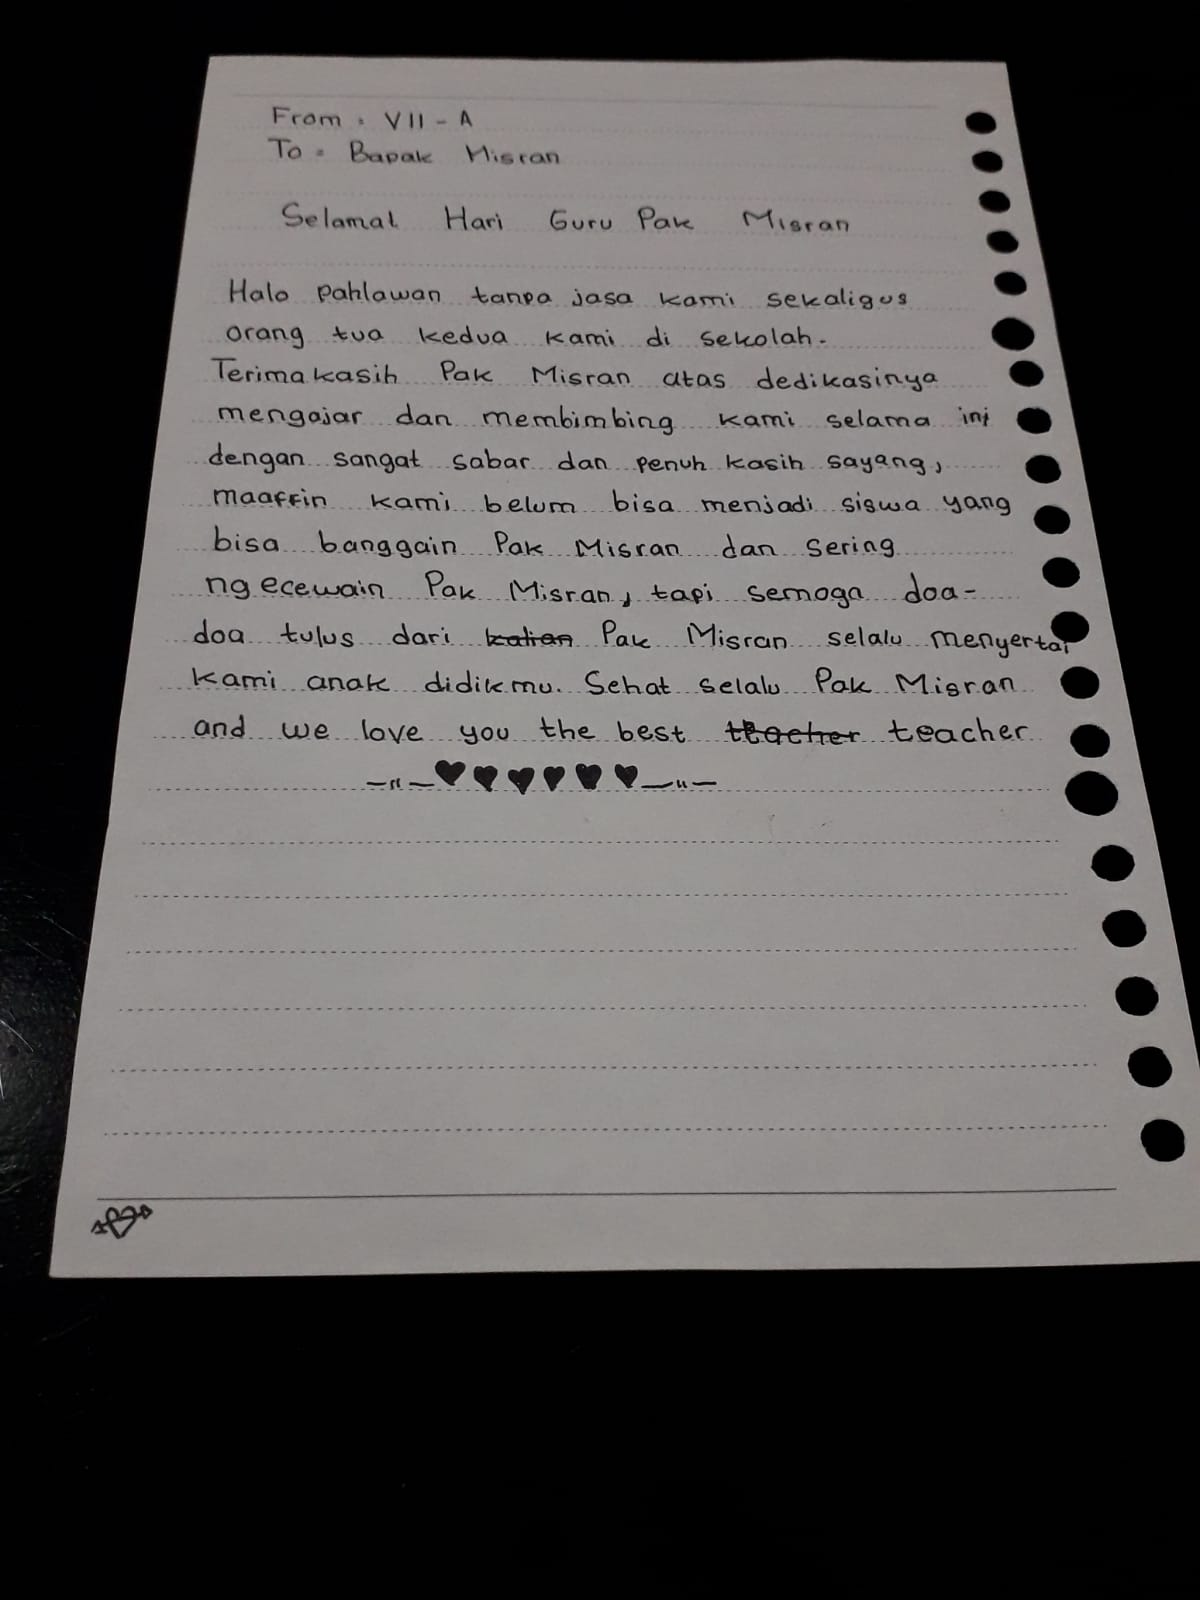 From : VII - A
To : Bapak Misran
Selamat Hari Guru Pak Misran
Halo pahlawan tanpa jasa kami sekaligus
orang tua kedua kami di sekolah.
Terimakasih Pak Misran atas dedikasinya
mengajar dan membimbing kami selama ini
dengan sangat sabar dan penuh kasih sayang,
maaffin kami belum bisa menjadi siswa yang
bisa banggain Pak Misran dan sering
ngecewain Pak Misran, tapi semoga doa-
doa tulus dari kalian Pak Misran selalu menyertai
kami anak didikmu. Sehat selalu Pak Misran
and we love you the best teacher teacher